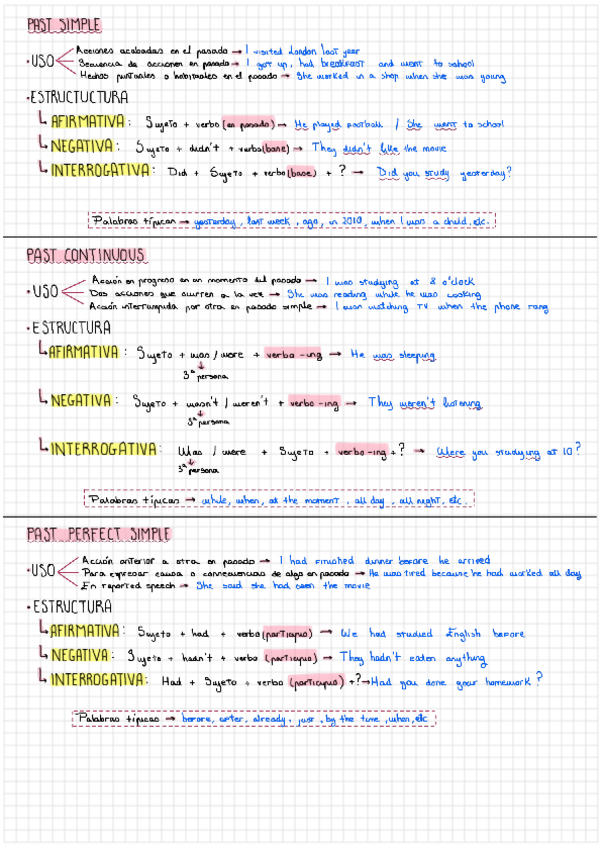 PAST SIMPLE
·USO
Acciones acabadas en el pasado → I visited London last year
Secuencia de acciones en pasado → I got up, had breakfast and went to school
Hechos puntuales o habituales en el pasado → She worked in a shop when she was young
·ESTRUCTUCTURA
↳ AFIRMATIVA: Sujeto + verbo (en pasado) → He played football / She went to school
↳ NEGATIVA: Sujeto + didn't + verbo (base) → They didn't like the movie
↳ INTERROGATIVA: Did + Sujeto + verbo (base) + ? → Did you study yesterday?
Palabras típicas → yesterday, last week, ago, in 2010, when I was a child, etc.
PAST CONTINUOUS
·USO
Acción en progreso en un momento del pasado → I was studying at 8 o'clock
Dos acciones que ocurren a la vez → She was reading while he was cooking
Acción interrumpida por otra en pasado simple → I was watching TV when the phone rang
·ESTRUCTURA
↳ AFIRMATIVA: Sujeto + was / were + verbo -ing → He was sleeping
3ª persona
↳ NEGATIVA: Sujeto + wasn't / weren't + verbo -ing → They weren't listening
3ª persona
↳ INTERROGATIVA: Was / were + Sujeto + verbo -ing + ? → Were you studying at 10?
3ª persona
Palabras típicas → while, when, at the moment, all day, all night, etc.
PAST PERFECT SIMPLE
·USO
Acción anterior a otra en pasado → I had finished dinner before he arrived
Para expresar causa o consecuencias de algo en pasado → He was tired because he had worked all day
En reported speech → She said she had seen the movie
·ESTRUCTURA
↳ AFIRMATIVA: Sujeto + had + verbo (participio) → We had studied English before
↳ NEGATIVA: Sujeto + hadn't + verbo (participio) → They hadn't eaten anything
↳ INTERROGATIVA: Had + Sujeto + verbo (participio) + ? → Had you done your homework?
Palabras típicas → before, after, already, just, by the time, when, etc